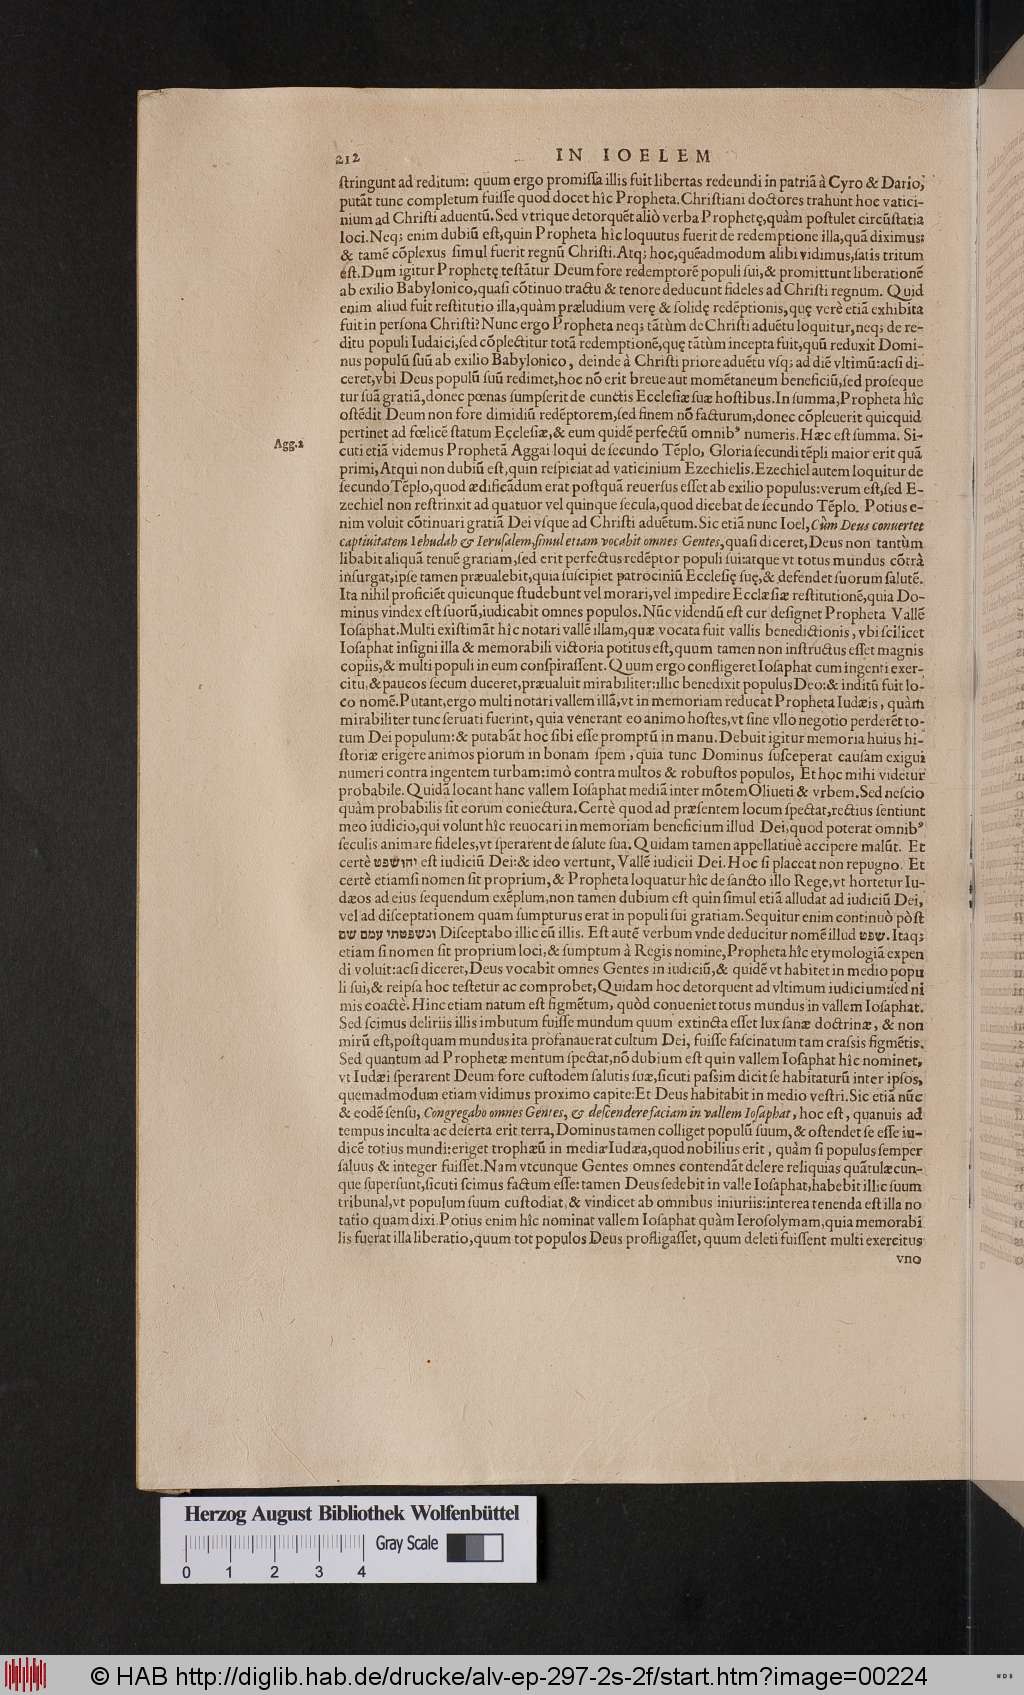 212 IN IOELEM
ſtringunt ad reditum: quum ergo promiſſa illis fuit libertas redeundi in patriã à Cyro & Dario,
putãt tunc completum fuiſſe quod docet hîc Propheta. Chriſtiani doctores trahunt hoc vatici-
nium ad Chriſti aduentũ. Sed vtrique detorquẽt aliò verba Prophetę, quàm poſtulet circũſtatia
loci. Neq; enim dubiũ eſt, quin Propheta hîc loquutus fuerit de redemptione illa, quã diximus:
& tamẽ cõplexus ſimul fuerit regnũ Chriſti. Atq; hoc, quẽadmodum alibi vidimus, ſatis tritum
eſt. Dum igitur Prophetę teſtãtur Deum fore redemptorẽ populi ſui, & promittunt liberationẽ
ab exilio Babylonico, quaſi cõtinuo tractu & tenore deducunt fideles ad Chriſti regnum. Quid
enim aliud fuit reſtitutio illa, quàm præludium verę & ſolidę redẽptionis, quę verè etiã exhibita
fuit in perſona Chriſti? Nunc ergo Propheta neq; tãtùm de Chriſti aduẽtu loquitur, neq; de re-
ditu populi Iudaici, ſed cõplectitur totã redemptionẽ, quę tãtùm incepta fuit, quũ reduxit Domi-
nus populũ ſuũ ab exilio Babylonico, deinde à Chriſti priore aduẽtu vſq; ad diẽ vltimũ: acſi di-
ceret, vbi Deus populũ ſuũ redimet, hoc nõ erit breue aut momẽtaneum beneficiũ, ſed proſeque
tur ſuã gratiã, donec pœnas ſumpſerit de cunctis Eccleſiæ ſuæ hoſtibus. In ſumma, Propheta hîc
oſtẽdit Deum non fore dimidiũ redẽptorem, ſed finem nõ facturum, donec cõpleuerit quicquid
pertinet ad fœlicẽ ſtatum Eccleſiæ, & eum quidẽ perfectũ omnibꝰ numeris. Hæc eſt ſumma. Si-
Agg.2
cuti etiã videmus Prophetã Aggai loqui de ſecundo Tẽplo, Gloria ſecundi tẽpli maior erit quã
primi, Atqui non dubiũ eſt, quin reſpiciat ad vaticinium Ezechielis. Ezechiel autem loquitur de
ſecundo Tẽplo, quod ædificãdum erat poſtquã reuerſus eſſet ab exilio populus: verum eſt, ſed E-
zechiel non reſtrinxit ad quatuor vel quinque ſecula, quod dicebat de ſecundo Tẽplo. Potius e-
nim voluit cõtinuari gratiã Dei vſque ad Chriſti aduẽtum. Sic etiã nunc Ioel, Cùm Deus conuertet
captiuitatem Iehudah & Ieruſalem, ſimul etiam vocabit omnes Gentes, quaſi diceret, Deus non tantùm
libabit aliquã tenuẽ gratiam, ſed erit perfectus redẽptor populi ſui: atque vt totus mundus cõtrà
inſurgat, ipſe tamen præualebit, quia ſuſcipiet patrociniũ Eccleſię ſuę, & defendet ſuorum ſalutẽ.
Ita nihil proficiẽt quicunque ſtudebunt vel morari, vel impedire Eccleſiæ reſtitutionẽ, quia Do-
minus vindex eſt ſuorũ, iudicabit omnes populos. Nũc videndũ eſt cur deſignet Propheta Vallẽ
Ioſaphat. Multi exiſtimãt hîc notari vallẽ illam, quæ vocata fuit vallis benedictionis, vbi ſcilicet
Ioſaphat inſigni illa & memorabili victoria potitus eſt, quum tamen non inſtructus eſſet magnis
copiis, & multi populi in eum conſpiraſſent. Quum ergo confligeret Ioſaphat cum ingenti exer-
citu, & paucos ſecum duceret, præualuit mirabiliter: illic benedixit populus Deo: & inditũ fuit lo-
co nomẽ. Putant, ergo multi notari vallem illã, vt in memoriam reducat Propheta Iudæis, quàm
mirabiliter tunc ſeruati fuerint, quia venerant eo animo hoſtes, vt ſine vllo negotio perderẽt to-
tum Dei populum: & putabãt hoc ſibi eſſe promptũ in manu. Debuit igitur memoria huius hi-
ſtoriæ erigere animos piorum in bonam ſpem, quia tunc Dominus ſuſceperat cauſam exigui
numeri contra ingentem turbam: imò contra multos & robuſtos populos, Et hoc mihi videtur
probabile. Quidã locant hanc vallem Ioſaphat mediã inter mõtem Oliueti & vrbem. Sed neſcio
quàm probabilis ſit eorum coniectura. Certè quod ad præſentem locum ſpectat, rectius ſentiunt
meo iudicio, qui volunt hîc reuocari in memoriam beneficium illud Dei, quod poterat omnibꝰ
ſeculis animare fideles, vt ſperarent de ſalute ſua. Quidam tamen appellatiuè accipere malũt. Et
certè יהושפט eſt iudiciũ Dei: & ideo vertunt, Vallẽ iudicii Dei. Hoc ſi placeat non repugno. Et
certè etiamſi nomen ſit proprium, & Propheta loquatur hîc de ſancto illo Rege, vt hortetur Iu-
dæos ad eius ſequendum exẽplum, non tamen dubium eſt quin ſimul etiã alludat ad iudiciũ Dei,
vel ad diſceptationem quam ſumpturus erat in populi ſui gratiam. Sequitur enim continuò pòſt
ונשפטתי עמם שם Diſceptabo illic cũ illis. Eſt autẽ verbum vnde deducitur nomẽ illud שפט. Itaq;
etiam ſi nomen ſit proprium loci, & ſumptum à Regis nomine, Propheta hîc etymologiã expen
di voluit: acſi diceret, Deus vocabit omnes Gentes in iudiciũ, & quidẽ vt habitet in medio popu
li ſui, & reipſa hoc teſtetur ac comprobet, Quidam hoc detorquent ad vltimum iudicium: ſed ni
mis coactè. Hinc etiam natum eſt figmẽtum, quòd conueniet totus mundus in vallem Ioſaphat.
Sed ſcimus deliriis illis imbutum fuiſſe mundum quum extincta eſſet lux ſanæ doctrinæ, & non
mirũ eſt, poſtquam mundus ita profanauerat cultum Dei, fuiſſe faſcinatum tam craſsis figmẽtis.
Sed quantum ad Prophetæ mentum ſpectat, nõ dubium eſt quin vallem Ioſaphat hîc nominet,
vt Iudæi ſperarent Deum fore cuſtodem ſalutis ſuæ, ſicuti paſsim dicit ſe habitaturũ inter ipſos,
quemadmodum etiam vidimus proximo capite: Et Deus habitabit in medio veſtri. Sic etiã nũc
& eodẽ ſenſu, Congregabo omnes Gentes, & deſcendere faciam in vallem Ioſaphat, hoc eſt, quanuis ad
tempus inculta ac deſerta erit terra, Dominus tamen colliget populũ ſuum, & oſtendet ſe eſſe iu-
dicẽ totius mundi: eriget trophæũ in media Iudæa, quod nobilius erit, quàm ſi populus ſemper
ſaluus & integer fuiſſet. Nam vtcunque Gentes omnes contendãt delere reliquias quãtulæcun-
que ſuperſunt, ſicuti ſcimus factum eſſe: tamen Deus ſedebit in valle Ioſaphat, habebit illic ſuum
tribunal, vt populum ſuum cuſtodiat, & vindicet ab omnibus iniuriis: interea tenenda eſt illa no
tatio quam dixi. Potius enim hîc nominat vallem Ioſaphat quàm Ieroſolymam, quia memorabi
lis fuerat illa liberatio, quum tot populos Deus profligaſſet, quum deleti fuiſſent multi exercitus
vno
Herzog August Bibliothek Wolfenbüttel
Gray Scale
0 1 2 3 4
© HAB http://diglib.hab.de/drucke/alv-ep-297-2s-2f/start.htm?image=00224
WDB